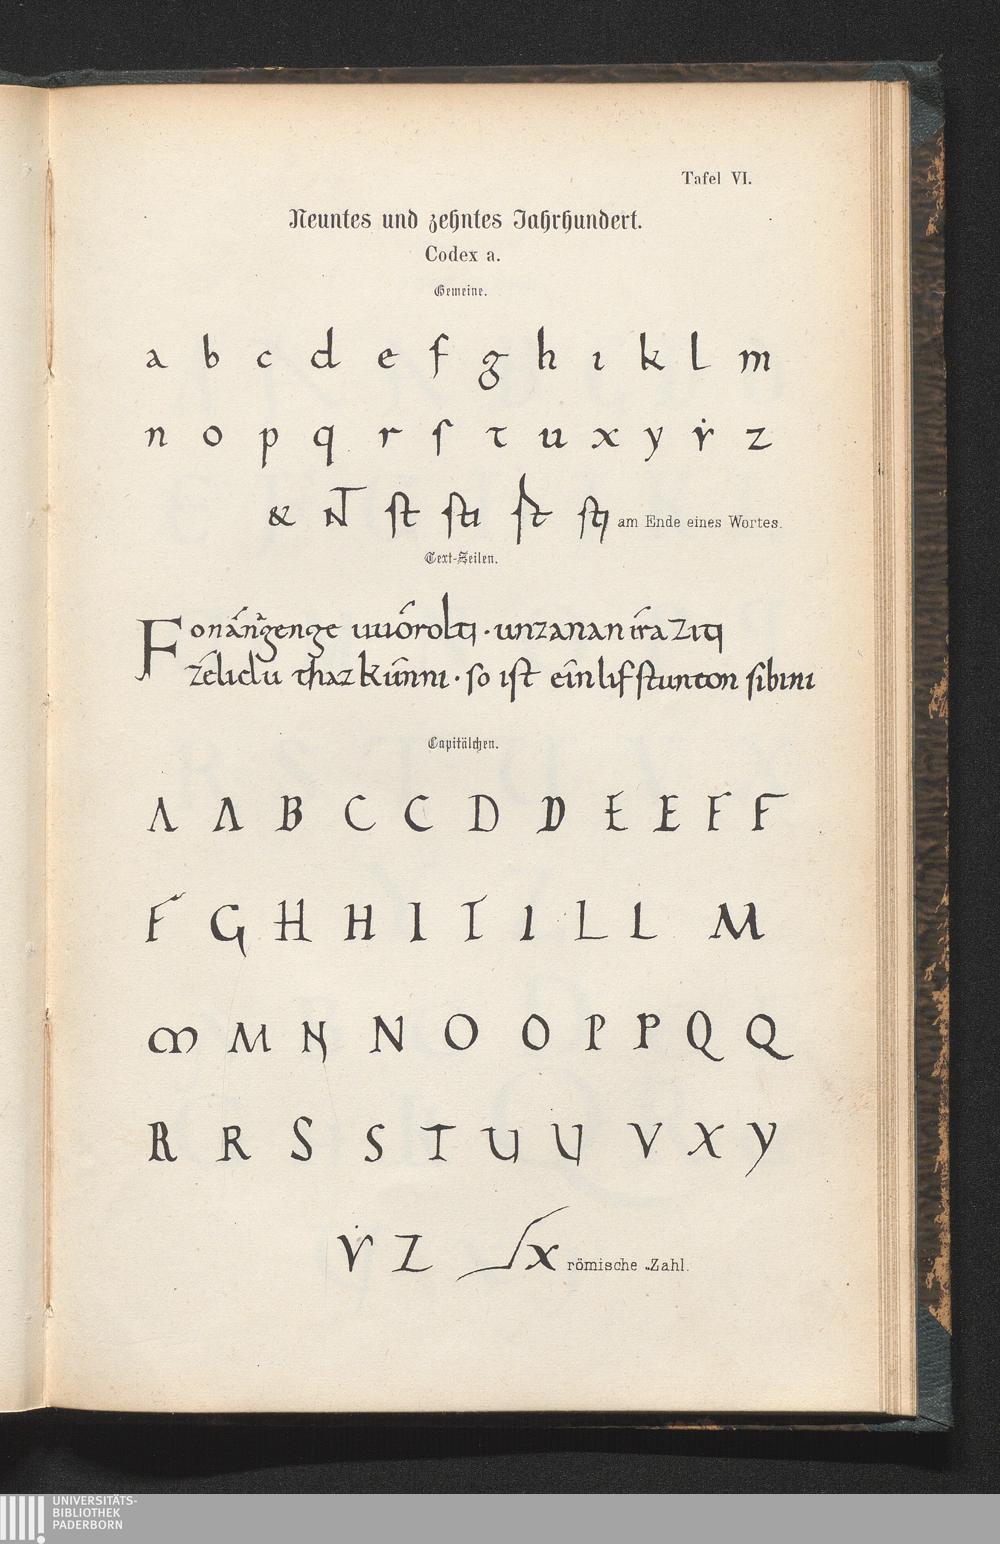 Tafel VI.
Neuntes und zehntes Jahrhundert.
Codex a.
Gemeine.
a b c d e f g h ı k l m
n o p q r ſ t u x y ẏ z
& NT ſt ſti ſt ſti am Ende eines Wortes.
Text-Zeilen.
Fon ángenge uuórolti · unzanan íra ziti
zélıdu thaz kúnnı · so ıſt eín lıf ſtunton ſıbını
Capitälchen.
A A B C C D D E E F F
F G H H I I I L L M
M M N N O O P P Q Q
R R S S T U U V X Y
Ẏ Z LX römische Zahl.
UNIVERSITÄTS-
BIBLIOTHEK
PADERBORN